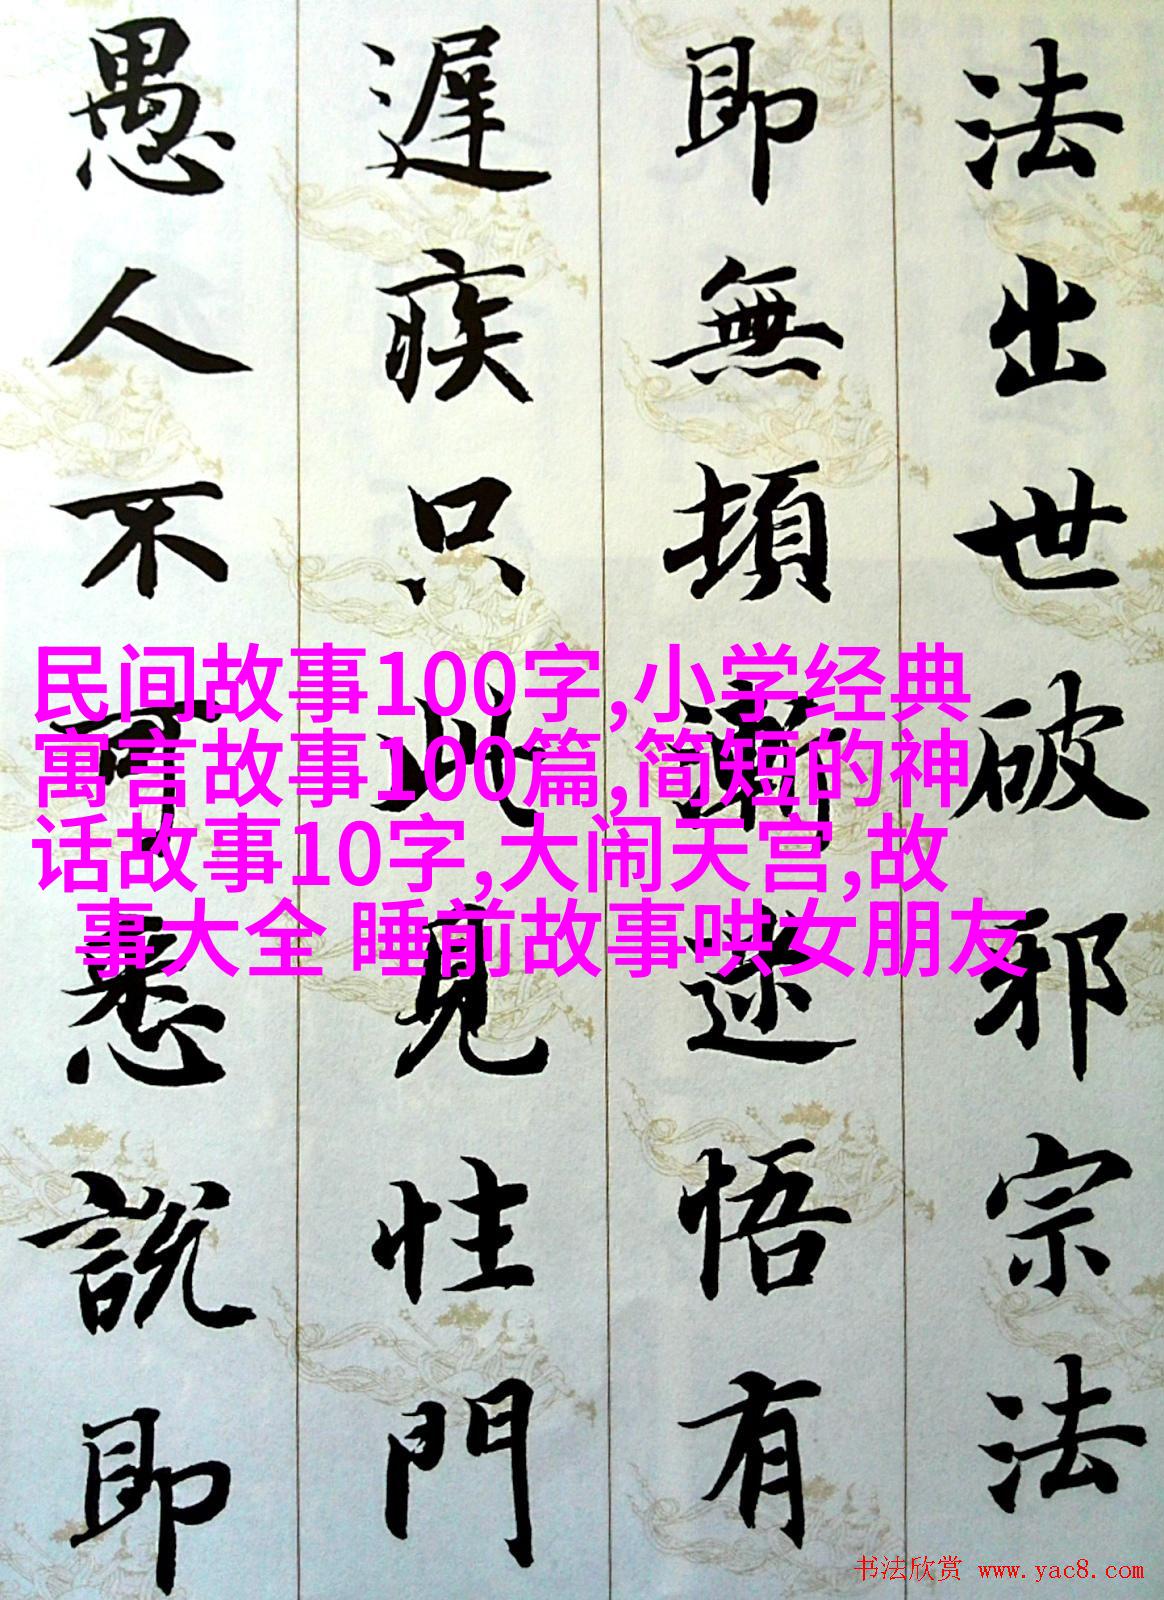 法出世破邪宗法
即無頓漸迷悟有
遲疾只此見性門
愚人不可悉說即
民间故事100字,小学经典
寓言故事100篇,简短的神
话故事10字,大闹天宫,故
事大全 睡前故事哄女朋友
书法欣赏 www.yac8.com